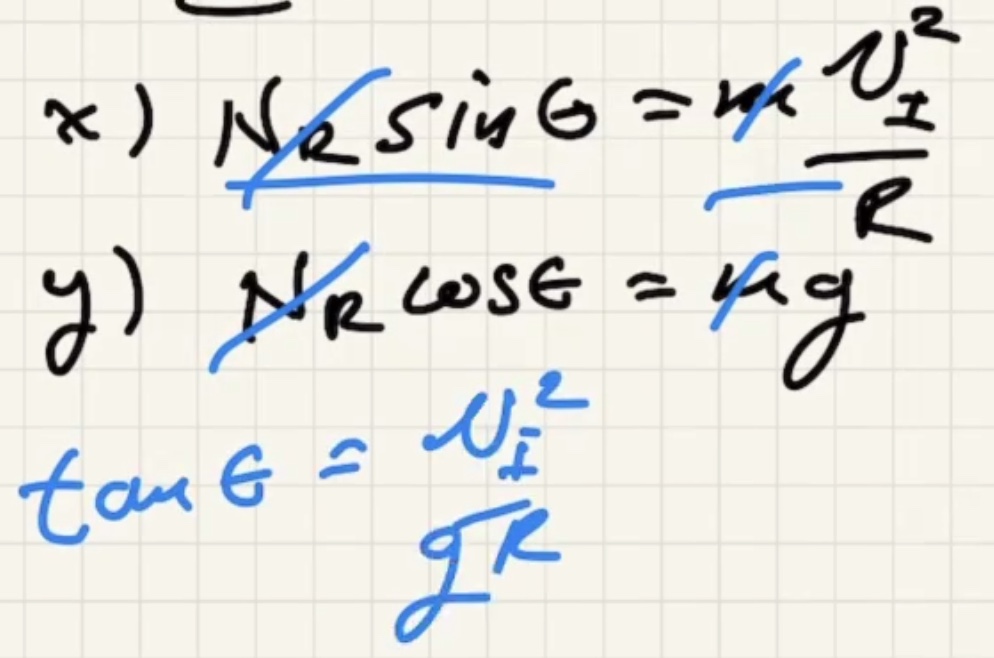 x) N_R sin θ = m v_I² / R
y) N_R cos θ = m g
tan θ = v_I² / gR